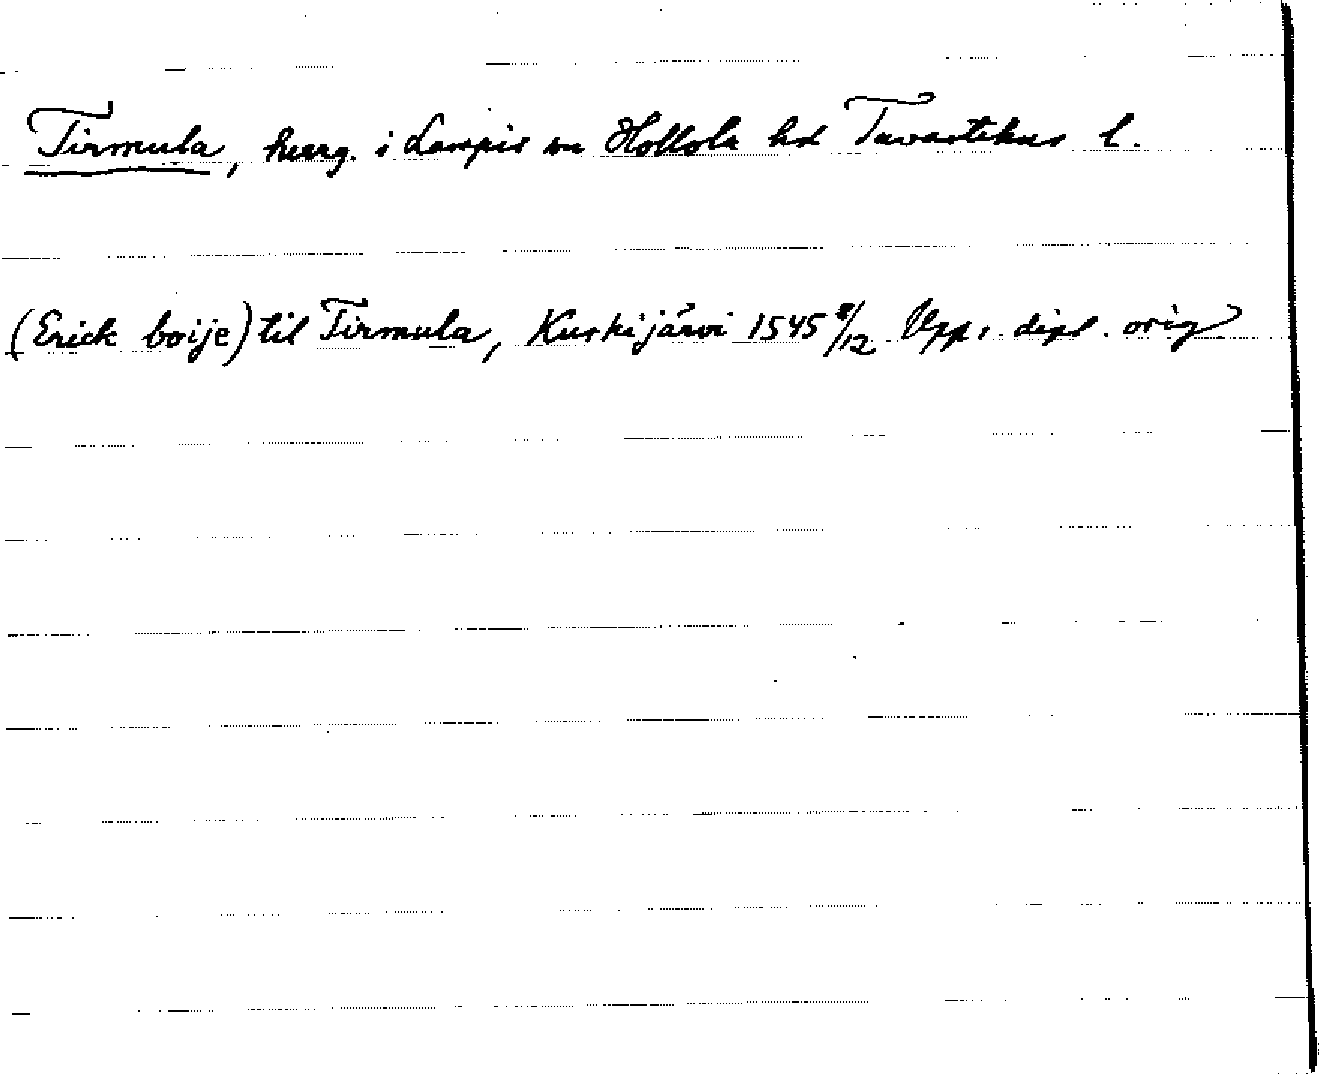 Tirmula, herrg. i Lampis sn Hollola hd Tavastehus l.
(Erick boije) til Tirmula, Kurkijärvi 1545 8/12 Upps. dipl. orig